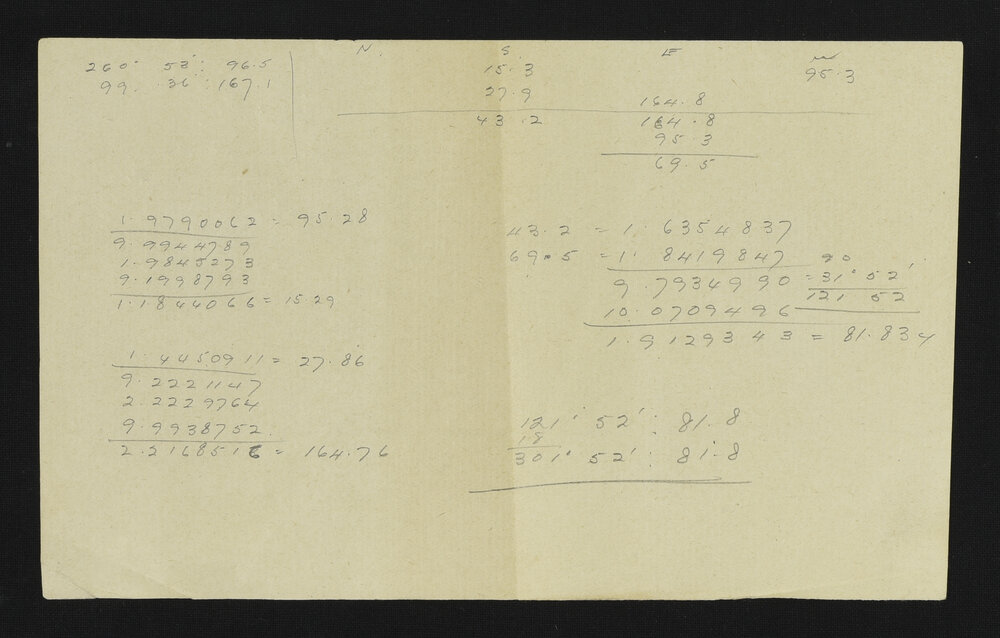 260° 53' : 96.5
99 . 36' : 167.1
N. S. E W
15.3 95.3
27.9
164.8
43.2 164.8
95.3
69.5
1.9790062 = 95.28
9.9944789
1.9845273
9.1998793
1.1844066 = 15.29
1.4450911 = 27.86
9.2221147
2.2229764
9.9938752
2.2168516 = 164.76
43.2 = 1.6354837
69.5 = 1.8419847
90
9.7934990 = 31° 52'
121 52
10.0709496
1.9129343 = 81.834
121° 52' : 81.8
18
301° 52' : 81.8